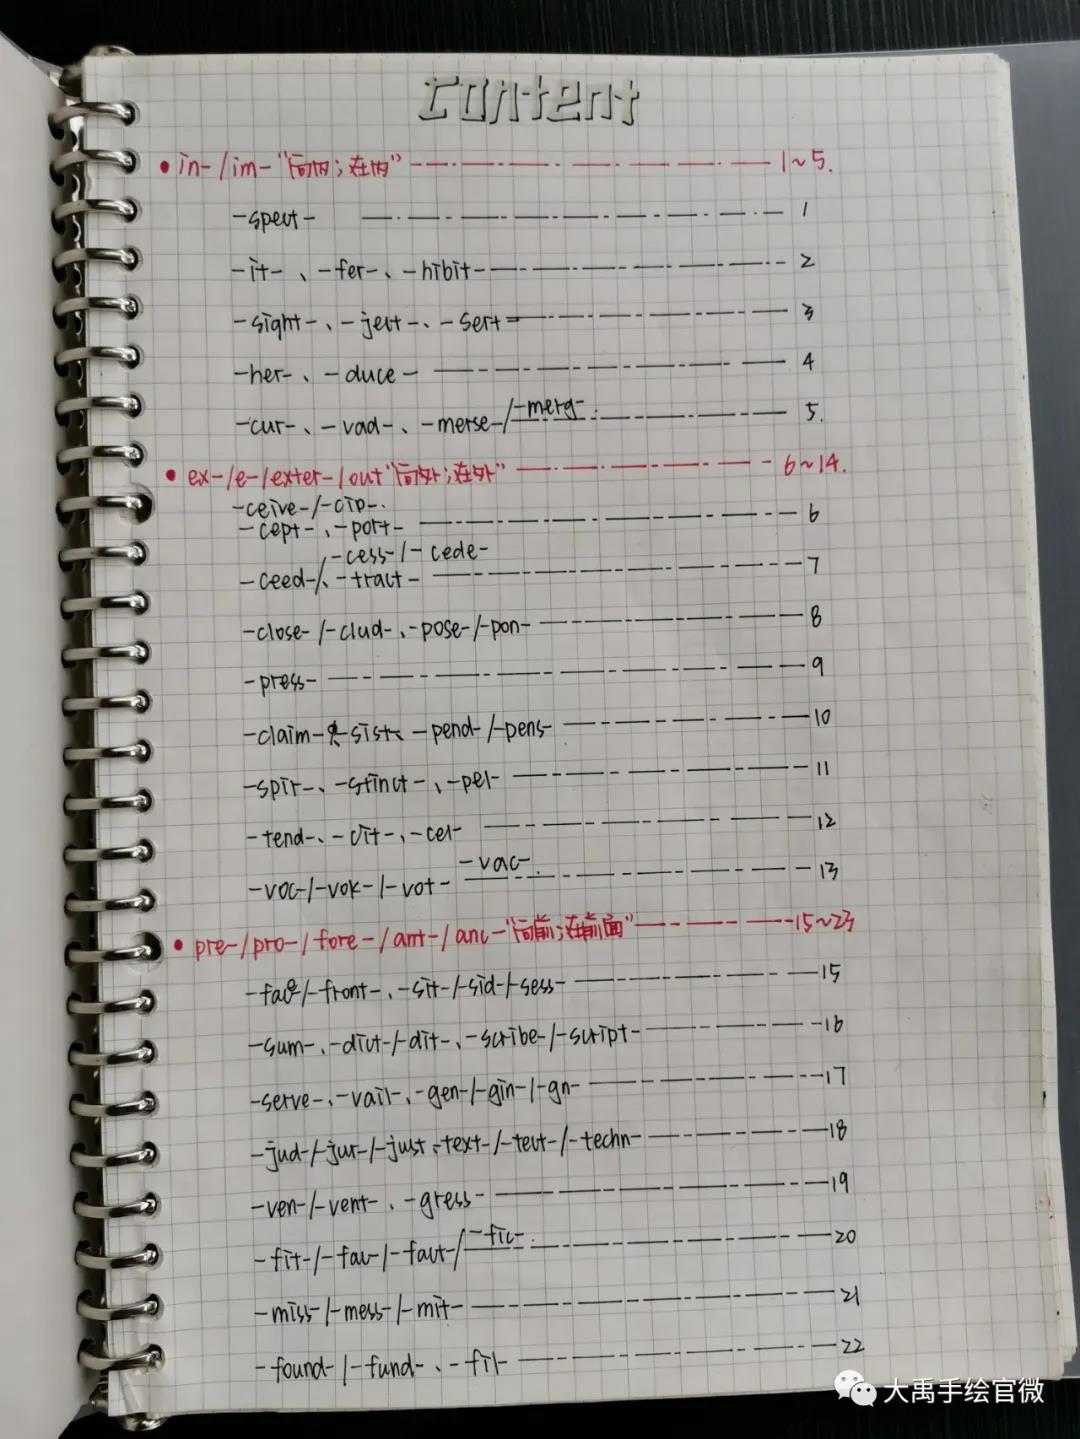 Content
• in- / im- "向内；在内" 1~5.
-spect- 1
-it- 、-fer-、-hibit- 2
-sight-、-ject-、-sert- 3
-her-、-duce- 4
-cur-、-vad-、-merse-/-merg- 5.
• ex-/e-/exter-/out "向外；在外" 6~14.
-ceive-/-cip-
-cept-、-port- 6
-cess-/-cede-
-ceed-/、-tract- 7
-close-/-clud-、-pose-/-pon- 8
-press- 9
-claim-、-sist-、-pend-/-pens- 10
-spir-、-stinct-、-pel- 11
-tend-、-cit-、-cel- 12
-voc-/-vok-/-vot- -vac- 13
• pre-/pro-/fore-/ant-/anc- "向前；在前面" 15~23
-face-/-front-、-sit-/-sid-/-sess- 15
-sum-、-dict-/-dit-、-scribe-/-script- 16
-serve-、-vail-、-gen-/-gin-/-gn- 17
-jud-/-jur-/-just、-text-/-tect-/-techn- 18
-ven-/-vent-、-gress- 19
-fit-/-fac-/-fact-/-fic- 20
-miss-/-mess-/-mit- 21
-found-/-fund-、-fil- 22
大禹手绘官微